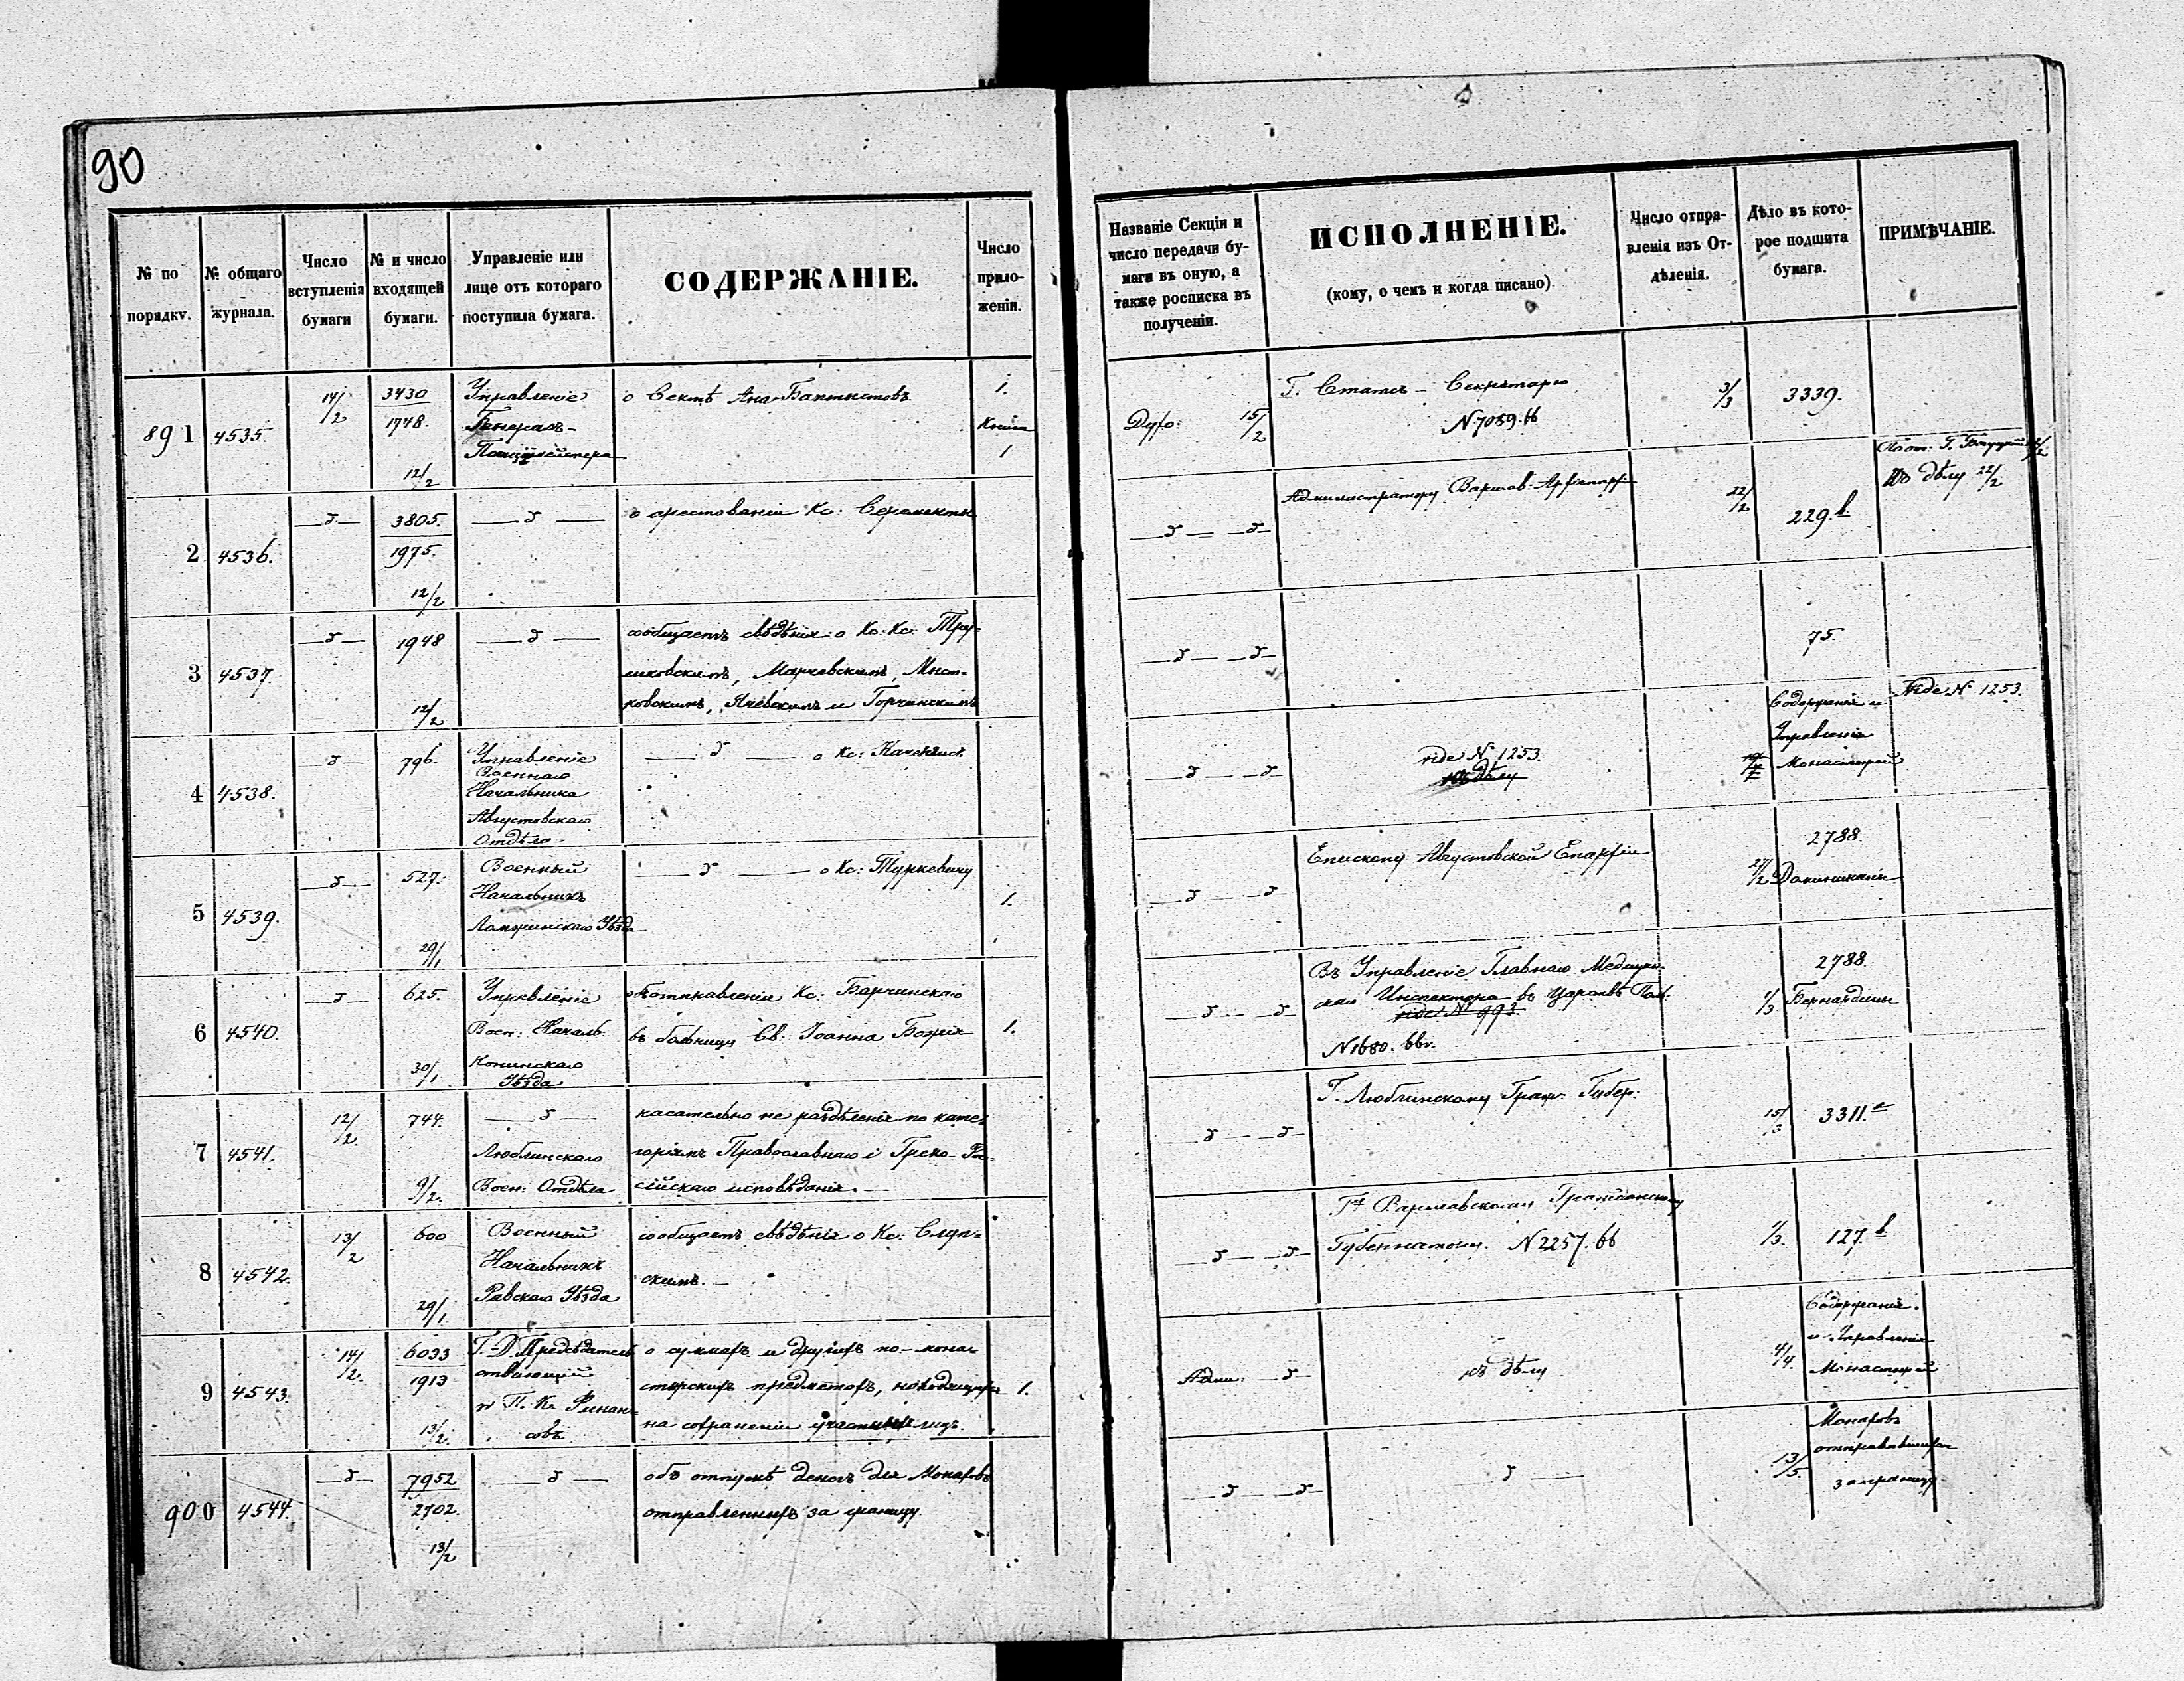 90
№ по порядку.
№ общаго журнала.
Число вступленія бумаги
№ и число входящей бумаги.
Управленіе или лице отъ котораго поступила бумага.
СОДЕРЖАНІЕ.
Число приложеній.
Названіе Секціи и число передачи бумаги въ оную, а также росписка въ полученіи.
ИСПОЛНЕНІЕ.
(кому, о чемъ и когда писано)
Число отправленія изъ Отдѣленія.
Дѣло въ которое подшита бумага.
ПРИМѢЧАНІЕ.
891
4535.
14/2
3430
1748.
12/2
Управленіе
Генералъ-
Полицiймейстера
о Сектѣ Ана-Баптистовъ.
1.
1
Духо: 15/2
Г. Статсъ-Секретарю
N 7089.
3/3
3339.
2
4536.
3805.
1975.
12/2
о арестованіи Кс:
Администратору Варшав: Архіепарх:
22/2
229.
Къ дѣлу 22/2
3
4537.
1948
12/2
сообщаетъ свѣдѣнія о Кс. Кс.
Марчевскимъ,
и Горчинскимъ
75.
4
4538.
796.
Управленіе
Военнаго
Начальника
Августовскаго
Отдѣла
о Кс:
vide N 1253.
Содержаніе и
Управленіе
Монастырей
vide N 1253.
5
4539.
527.
29/1
Военный
Начальникъ
Ломжинскаго Уѣзда
о Кс: Туркевичу
1.
Епископу Августовской Епархіи
27/2
2788.
Доминикане
6
4540.
625.
30/1
Управленіе
Воен: Началь:
Конинскаго
Уѣзда
объ отправленіи Кс: Барчинскаго
въ больницу Св: Іоанна Божія
1.
Въ Управленіе Главнаго Медицин-
скаго Инспектора въ Царствѣ Пол:
vide N 993.
N 1680.
1/3
2788.
Бернардины
7
4541.
12/2.
744.
9/2.
Люблинскаго
Воен: Отдѣла
касательно не раздѣленія по кате-
горіямъ Православнаго и Греко-Рос-
сійскаго исповѣданія.
Г. Люблинскому Граж: Губер:
15/3
3311.
8
4542.
13/2
600
29/1
Военный
Начальникъ
Равскаго Уѣзда
сообщаетъ свѣдѣнія о Кс: Слуп-
скимъ.
Варшавскому Гражданскому
Губернатору. N 2257.
1/3.
127.
9
4543.
14/2.
6033
1913
13/2.
Г. Д. Предсѣдатель-
ствующій
въ П. К. Финан-
совъ
о суммахъ и другихъ по-мона-
стырскихъ предметахъ, находящихся
на сохраненіи лицъ.
1.
Адми:
къ дѣлу
4/4.
Содержаніе
и Управленіе
Монастырей
900
4544.
7952
2702.
13/2
объ отпускѣ денегъ для Монаховъ
отправленныхъ за границу
13/5.
Монаховъ
отправленныхъ
за границу